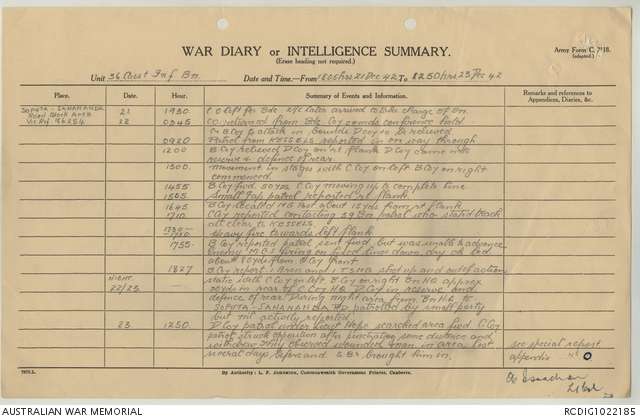 WAR DIARY or INTELLIGENCE SUMMARY.
(Erase heading not required.)
Army Form C. 2118.
(adapted.)
Unit 36 Aust Inf Bn. Date and Time—From 1805hrs 21 Dec 42 To 1250hrs 23 Dec 42
Place. Date. Hour. Summary of Events and Information. Remarks and references to Appendices, Diaries, &c.
SOPUTA - SANANANDA 21 1930 CO left for Bde. 2i/c later arrived to take charge of Bn.
Road Block Area 22 0845 CO. returned from Bde. Coy comds conference held
B Coy to attack in D Coy to be relieved.
0920 Patrol from KESSELS reported in on way through
1200 B Coy relieved D Coy on rt flank D Coy came into
reserve & defence of rear
1300 movement in stages with C Coy on left B Coy on right
commenced.
1455 B Coy fwd 50 yds C Coy moving up to complete line
1505 Small Jap patrol reported rt flank
1645 B Coy located MG Post about 15yds from rt flank
1710 C Coy reported contacting 39 Bn patrol who stated track
all clear to KESSELS
1730 Heavy fire towards left flank
1755 B Coy reported patrol sent fwd but was unable to advance
Enemy M.G's firing on fixed lines down dry ck bed
about 80yds from B Coy front
1827 B Coy report 1 Bren and 1 TSMG shot up and out of action
NIGHT static with C Coy on left. B Coy on right Bn HQ approx
22/23. 70yds in rear of C Coy HQ D Coy in reserve and
defence of rear. During night area from Bn HQ to
SOPUTA-SANANANDA RD patrolled by small party
but no activity reported
23 1250 D Coy patrol under Lieut Hope searched area fwd. C Coy
patrol struck opposition after penetrating some distance and
withdrew. They observed wounded man in area lost
several days before and S.B's brought him in.
see special report
appendix
By Authority: L. F. Johnston, Commonwealth Government Printer, Canberra.
AUSTRALIAN WAR MEMORIAL
RCDIG1022185